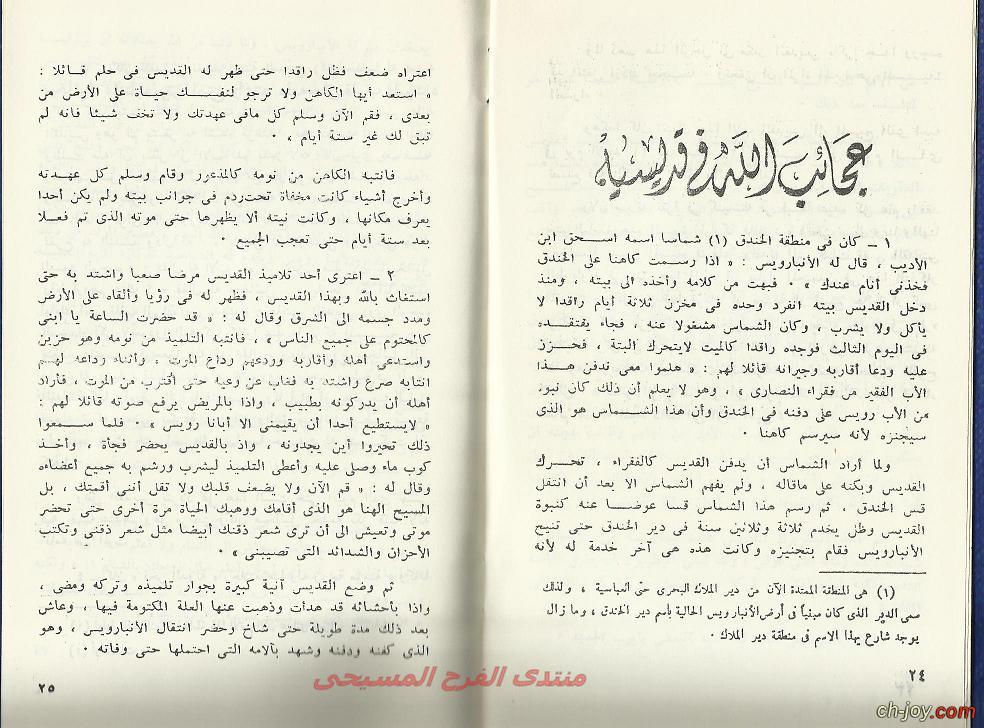 عجائب الله في قديسيه
١ ــ كان فى منطقة الخندق (١) شماسا اسمه اسـحق ابن
الأديب ، قال له الأنبارويس : « اذا رسمت كاهنا على الخندق
فخذنى أنام عندك » ٠ فبهت من كلامه وأخذه الى بيته ، ومنذ
دخل القديس بيته انفرد وحده فى مخزن ثلاثة أيام راقدا لا
يأكل ولا يشرب ، وكان الشماس مشغولا عنه ، فجاء يفتقـده
فى اليوم الثالث فوجده راقدا كالميت لايتحرك البتة ، فحـزن
عليه ودعا أقاربه وجيرانه قائلا لهم : « هلموا معى ندفن هـذا
الأب الفقير من فقراء النصارى » ، وهو لا يعلم أن ذلك كان نبوة
من الأب رويس على دفنه فى الخندق وأن هذا الشـماس هو الذى
سيجنزه لأنه سيرسم كاهنا ٠
ولما أراد الشماس أن يدفن القديس كالفقراء ، تحـرك
القديس وبكته على ماقاله ، ولم يفهم الشماس الا بعد أن انتقل
قس الخندق ، ثم رسم هذا الشماس قسا عوضـا عنه كنبوة
القديس وظل يخدم ثلاثة وثلاثين سنة فى دير الخندق حتى تنيح
الأنبارويس فقام بتجنيزه وكانت هذه هى آخر خدمة له لأنه
(١) هى المنطقة الممتدة الآن من دير الملاك البحرى حتى العباسية ، ولذلك
سمى الدير الذى كان مبنياً فى أرض الأنبارويس الحالية باسم دير الخندق ، وما زال
يوجد شارع بهذا الاسم فى منطقة دير الملاك ٠
٢٤
اعتراه ضعف فظل راقدا حتى ظهر له القديس فى حلم قائـلا :
« استعد أيها الكاهن ولا ترجو لنفسـك حياة على الأرض من
بعدى ، فقم الآن وسلم كل مافى عهدتك ولا تخف شيئا فانه لم
تبق لك غير ستة أيام » ٠
فانتبه الكاهن من نومه كالمذعور وقام وسلم كل عهـدته
وأخرج أشياء كانت مخفاة تحت ردم فى جوانب بيته ولم يكن أحدا
يعرف مكانها ، وكانت نيته ألا يظهرها حتى موته الذى تم فعـلا
بعد ستة أيام حتى تعجب الجميع ٠
٢ ــ اعترى أحد تلاميذ القديس مرضا صعبا واشتد به حتى
استغاث بالله وبهذا القديس ، فظهر له فى رؤيا وألقاه على الأرض
ومدد جسمه الى الشرق وقال له : « قد حضرت الساعة يا ابنى
كالمحتوم على جميع الناس » ، فانتبه التلميذ من نومه وهو حزين
واستدعى أهله وأقاربه وودعهم وداع الموت ، وأثناء وداعه لهـم
انتابه صرع واشتد به فغاب عن وعيه حتى أقترب من الموت ، فأراد
أهله أن يدركونه بطبيب ، واذا بالمريض يرفع صوته قائلا لهم :
« لايستطيع أحدا أن يقيمنى الا أبانا رويس » ٠ فلما سـمعوا
ذلك تحيروا أين يجدونه ، واذ بالقديس يحضر فجأة ، وأخـذ
كوب ماء وصلى عليه وأعطى التلميذ ليشرب ورشم به جميع أعضاءه
وقال له : « قم الآن ولا يضعف قلبك ولا تقل أننى أقمتك ، بل
المسيح الهنا هو الذى أقامك ووهبك الحياة مرة أخرى حتى تحضر
موتى وتعيش الى أن ترى شعر ذقنك أبيضا مثل شعر ذقنى وتكتب
الأحزان والشدائد التى تصيبنى » ٠
ثم وضع القديس آنية كبيرة بجوار تلميذه وتركه ومضى ،
واذا بأحشائه قد هدأت وذهبت عنها العلة المكتومة فيها ، وعاش
بعد ذلك مدة طويلة حتى شاخ وحضر انتقال الأنبارويس ، وهو
الذى كفنه ودفنه وشهد بآلامه التى احتملها حتى وفاته ٠
٢٥
منتدى الفرح المسيحى
ch-joy.com